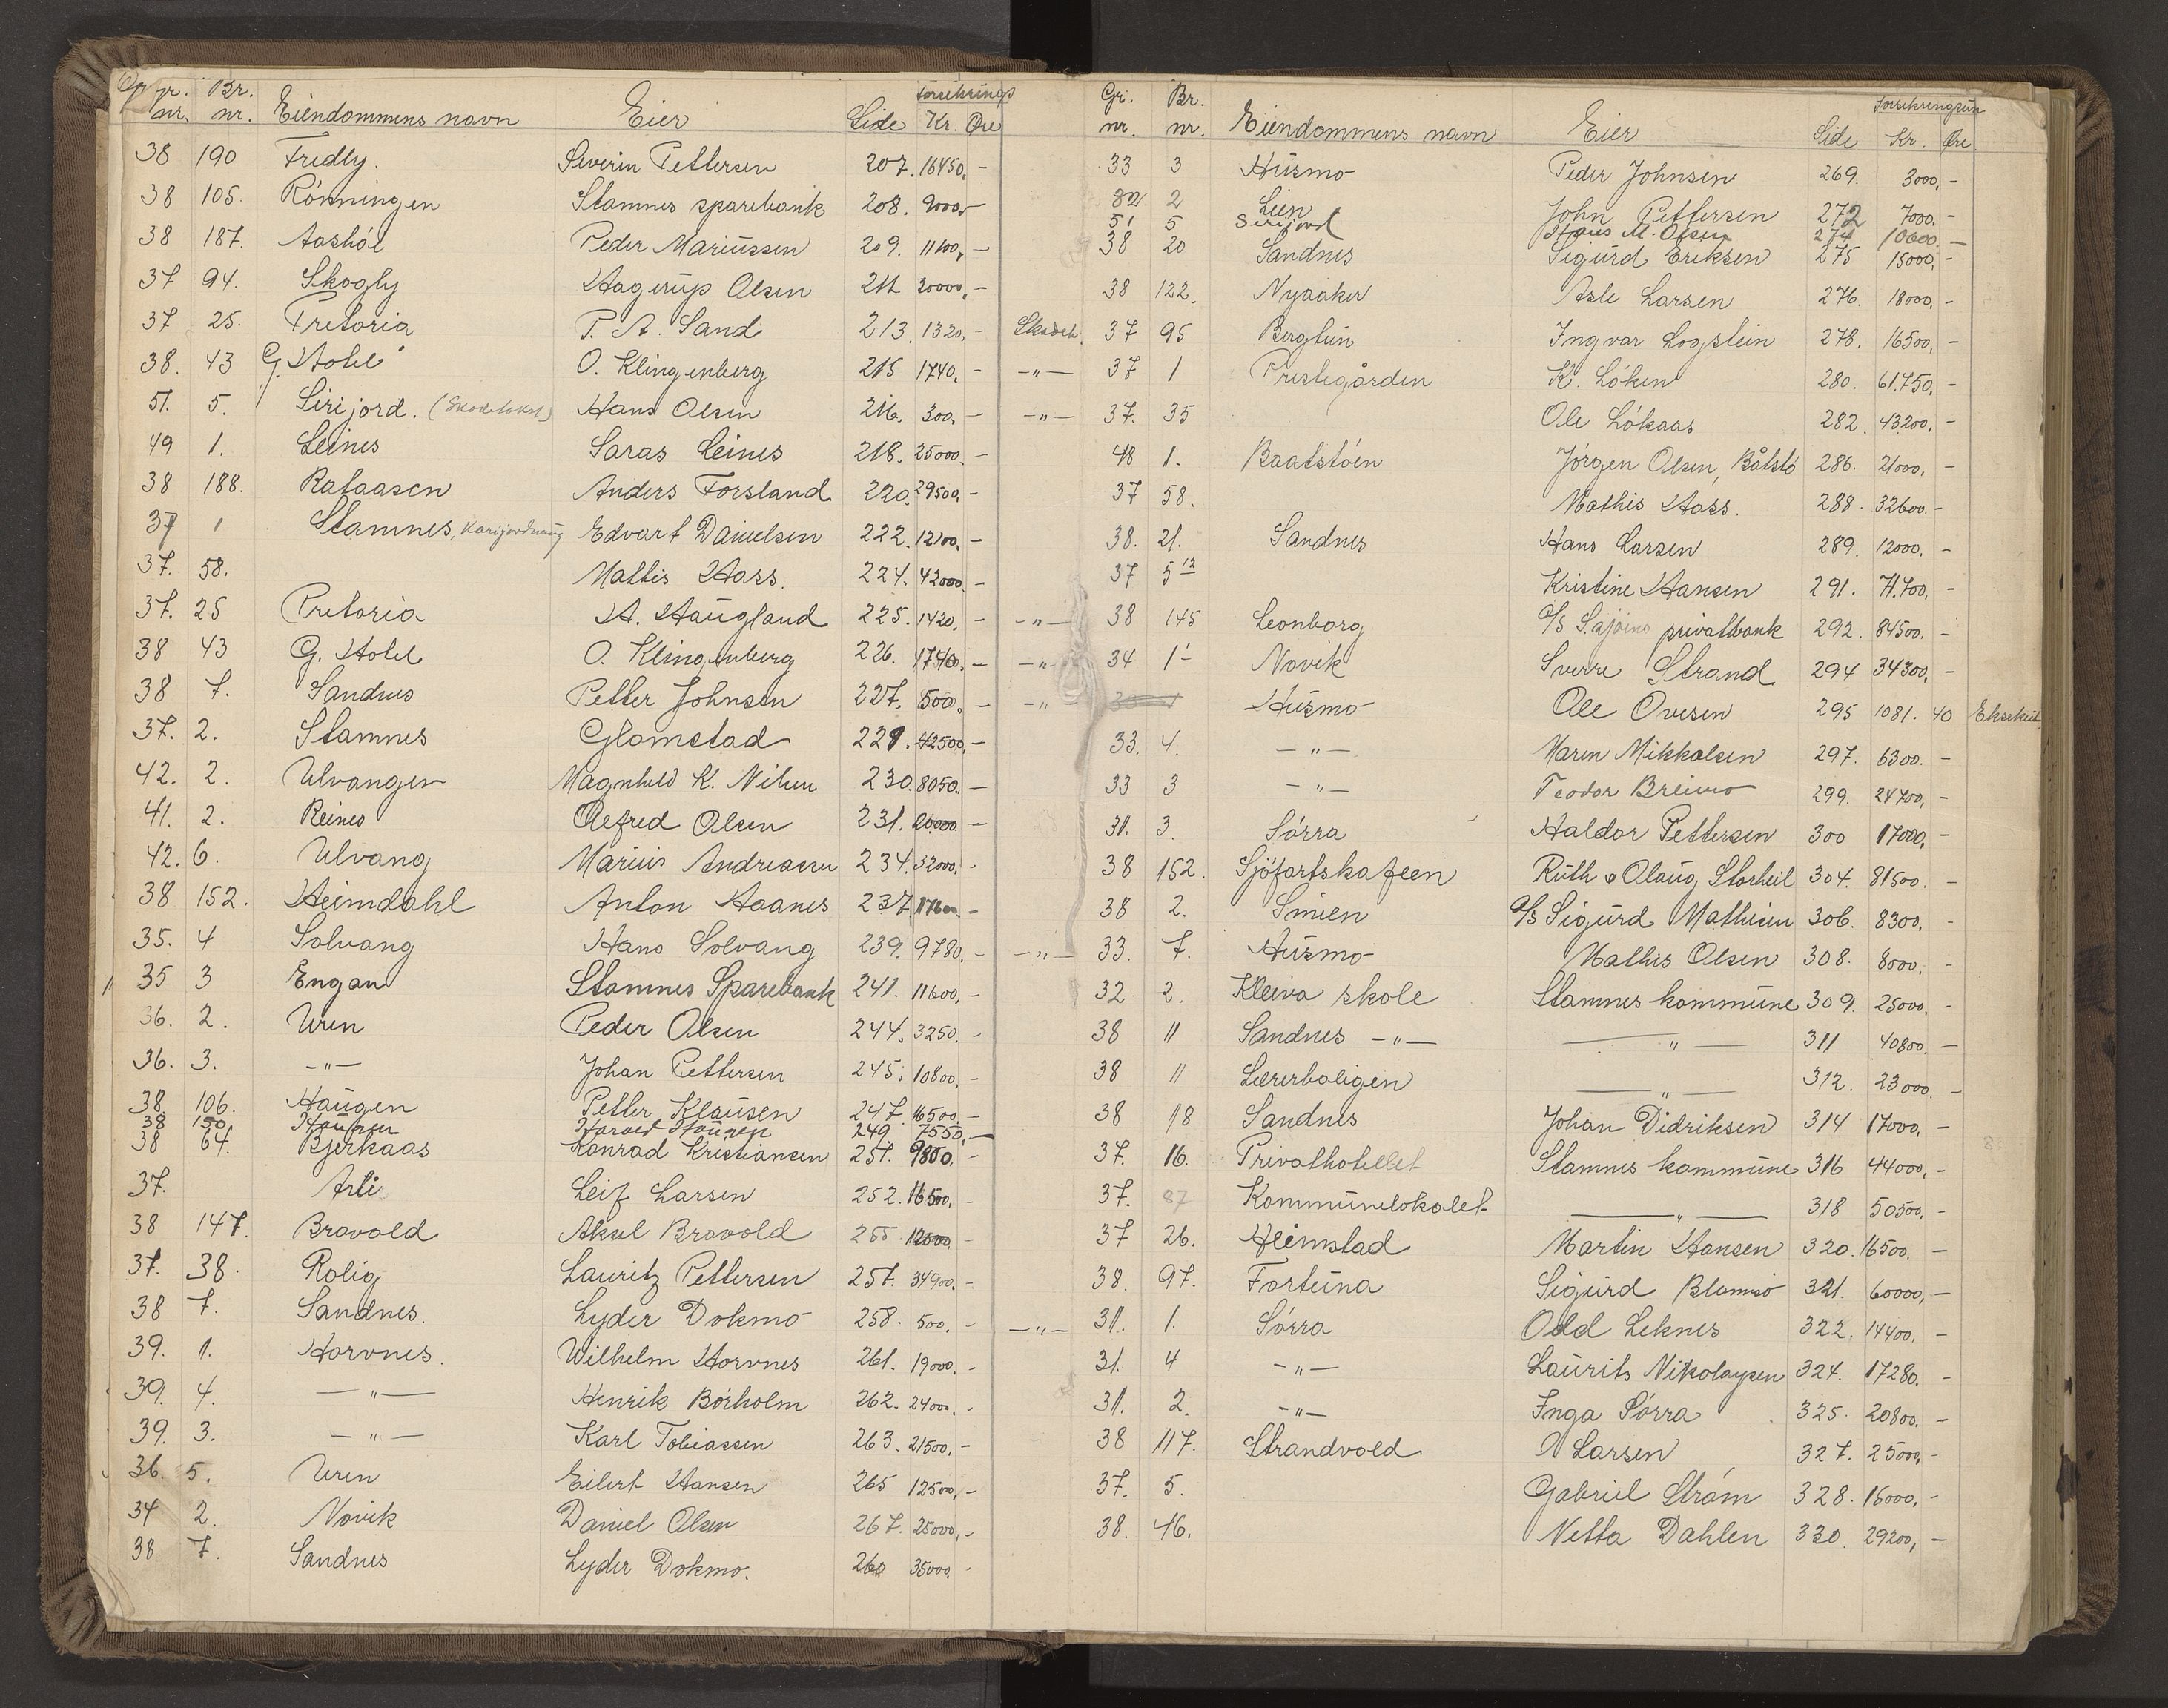 Gr. Br. forsikrings
nr. nr. Eiendommens navn Eier Side Kr. Øre
38 190 Fredly. Severin Pettersen 207. 16450, -
38 105. Rönningen Stamnes sparebank 208. 9000, -
38 187. Aashól Peder Mariussen 209. 11100, -
37 94. Skogly Hagerup Olsen 211. 20000, -
37 25. Pretoria P. A. Sand 213. 1320, - Skadet.
38. 43 G. Hotel O. Klingenberg 215 1740, - -"-
51. 5. Sirijord. (Skadetakst) Hans Olsen 216. 300, - -"-
49 1. Leines Saras Leines 218. 25000. -
38 188. Rataasen Anders Forsland 220. 29500. -
37 1 Stamnes, Edvart Danielsen 222. 12100, -
37. 58. Mattis Hass. 224. 42000 -
37. 25 Pretoria H. Haugland 225. 1420. - -"-
38 43 G. Hotel O. Klingenberg 226. 1740. - -"-
38 7. Sandnes Petter Johnsen 227. 500, - -"
37. 2. Stamnes Glomstad 229. 42500, -
42. 2. Ulvangen Magnhild K. Nilsen 230. 8050. -
41. 2. Reines Alfred Olsen 231. 20000 -
42. 6. Ulvang Marius Andreassen 234. 32000. -
38 152. Heimdahl Anton Haanes 237. 17600 -
35. 4 Solvang Hans Solvang 239. 9780. - -"-
35 3 Engan Stamnes Sparebank 241. 11600, -
36. 2. Uren Peder Olsen 244. 3250. -
36. 3. -"- Johan Pettersen 245. 10800, -
38. 106. Haugen Petter Klausen 247. 16500, -
38 150. Haugen Harald Haugen 249. 7550, -
38 64. Bjerkaas Konrad Kristiansen 251. 9800. -
37. Arti Leif Larsen 252. 16500, -
38 147. Bravold Aksel Bravold 255 12000 -
37. 38. Rolig Lauritz Pettersen 257. 34900. -
38 7. Sandnes. Lyder Dokmo 258. 500, - -"-
39. 1. Horvnes. Wilhelm Horvnes 261. 19000. -
39. 4. -"- Henrik Bórholm 262. 24000. -
39. 3. -"- Karl Tobiassen 263. 21500, -
36. 5. Uren Eilert Hansen 265 12500, -
34 2. Novik Daniel Olsen 267. 25000, -
38 7. Sandnes Lyder Dokmo. 260 35000. -
Gr. Br. forsikringssum
nr. nr. Eiendommens navn Eier Side Kr. Øre
33 3 Husmo Peder Johnsen 269. 3000, -
32 2 Lien John Pettersen 272 7000. -
51 5 Sirijord Hans M. Olsen 274 10600. -
38 20 Sandnes Sigurd Eriksen 275 15000, -
38 122. Nyaaker Asle Larsen 276. 18000, -
37 95 Bergtun Ingvar Logstein 278. 16500, -
37 1 Prestegården K. Löken 280. 61.750, -
37. 35 Ole Lókaas 282. 43200, -
48 1. Baatstóen Jörgen Olsen, Båtstó 286. 21000, -
37 58. Mathis Hass. 288. 32600. -
38. 21. Sandnes Hans Larsen 289. 12000. -
37 5 12 Kristine Hansen 291. 71.700, -
38 145 Leonborg A/s Sajoins privatbank 292. 84500. -
34 1 Novik Sverre Strand 294 34300, -
Husmo Ole Ovesen 295 1081. 40
33. 4. -"- Maren Mikkalsen 297. 6300. -
33 3 -"- Teodor Breimo 299. 24700, -
31. 3. Sórra Haldor Pettersen 300 17000, -
38 152. Sjöfartskafeen Ruth & Olaug Storheil 304. 81500. -
38 2. Smien A/s Sigurd Mathisen 306. 8300. -
33. 7. Husmo Mathis Olsen 308. 8000, -
32 2. Kleiva skole Stamnes kommune 309. 25000, -
38 11 Sandnes -"- -"- 311 40800. -
38 11 Lærerboligen -"- 312. 23000 -
38 118 Sandnes Johan Didriksen 314 17000, -
37. 16. Privathotellet Stamnes kommune 316 44000, -
37. 87 Kommunelokalet -"- 318 50500, -
37 26. Heimstad Martin Hansen 320. 16500. -
38. 97. Fortuna Sigurd Blomsö 321. 60000, -
31. 1. Sórra Odd Leknes 322. 14400. -
31. 4 -"- Laurits Nikolaysen 324. 17280. -
31. 2. -"- Inga Sórra 325. 20800. -
38 117. Strandvold O Larsen 327. 25000, -
37. 5. Gabriel Ström 328. 16000, -
38. 46. Netta Dahlen 330. 29200, -